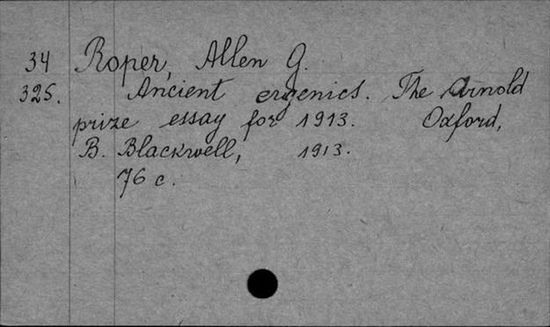 34 Roper, Allen G.
325. Ancient eugenics. The Arnold
prize essay for 1913. Oxford,
B. Blackwell, 1913.
76 c.